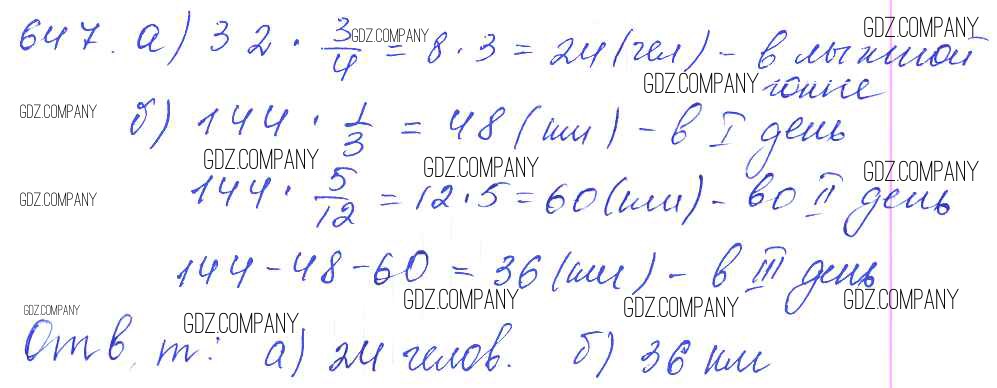 647. а) 32 · 3/4 = 8 · 3 = 24 (чел) – в лыжной
гонке
б) 144 · 1/3 = 48 (км) – в I день
144 · 5/12 = 12 · 5 = 60 (км) – во II день
144 – 48 – 60 = 36 (км) – в III день
Отв. т: а) 24 челов. б) 36 км
GDZ.COMPANY
GDZ.COMPANY
GDZ.COMPANY
GDZ.COMPANY
GDZ.COMPANY
GDZ.COMPANY
GDZ.COMPANY
GDZ.COMPANY
GDZ.COMPANY
GDZ.COMPANY
GDZ.COMPANY
GDZ.COMPANY
GDZ.COMPANY